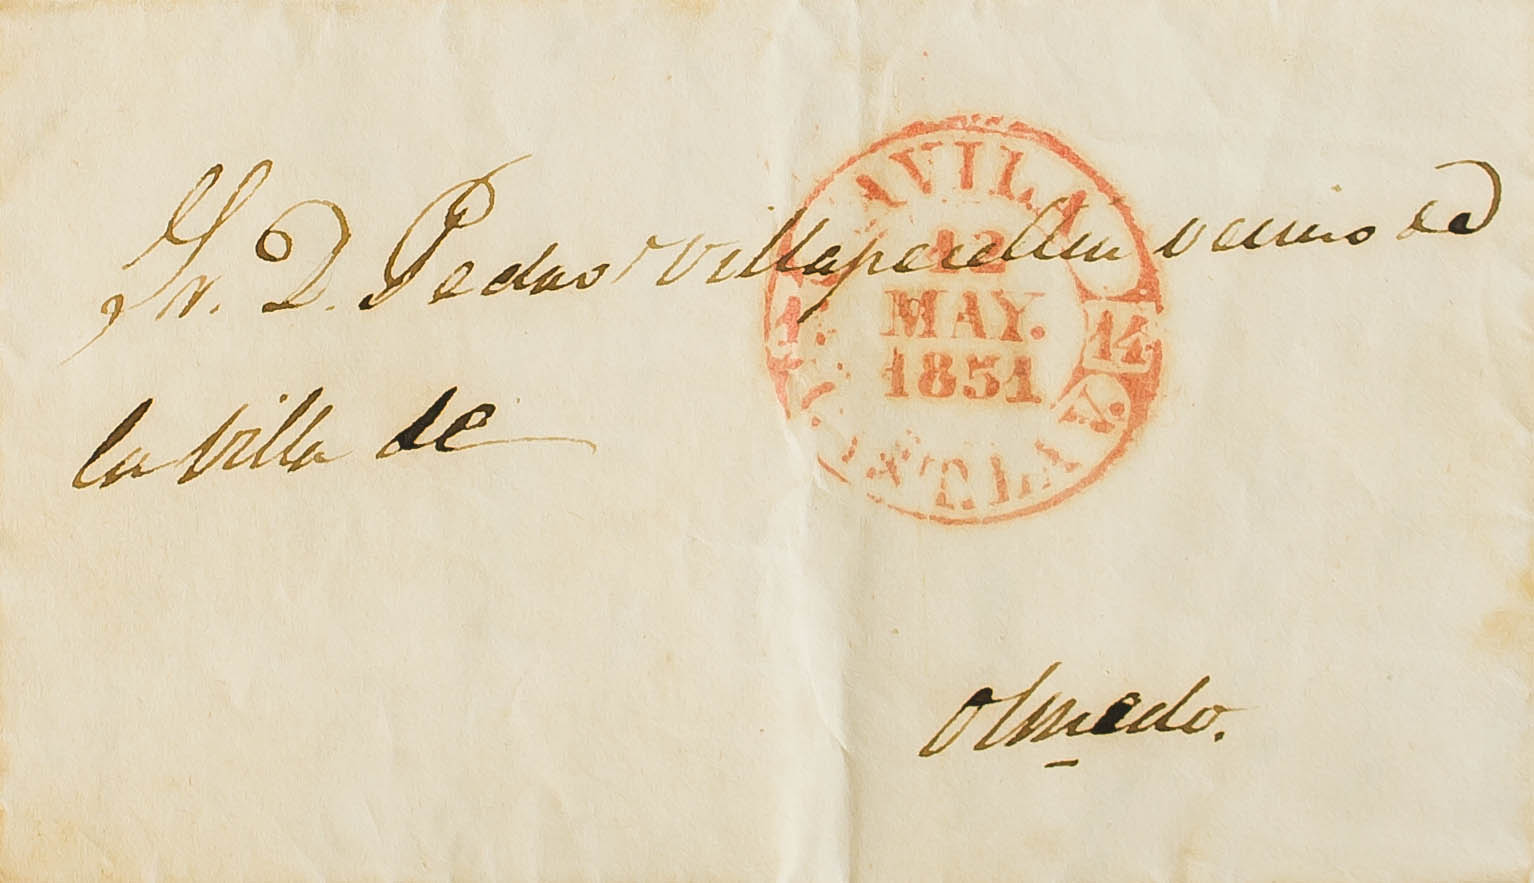 Sr. D. Pedro Villaperellin vecino de
la villa de
Olmedo.
AVILA
12
MAY.
1851
14
CAST.LA V.